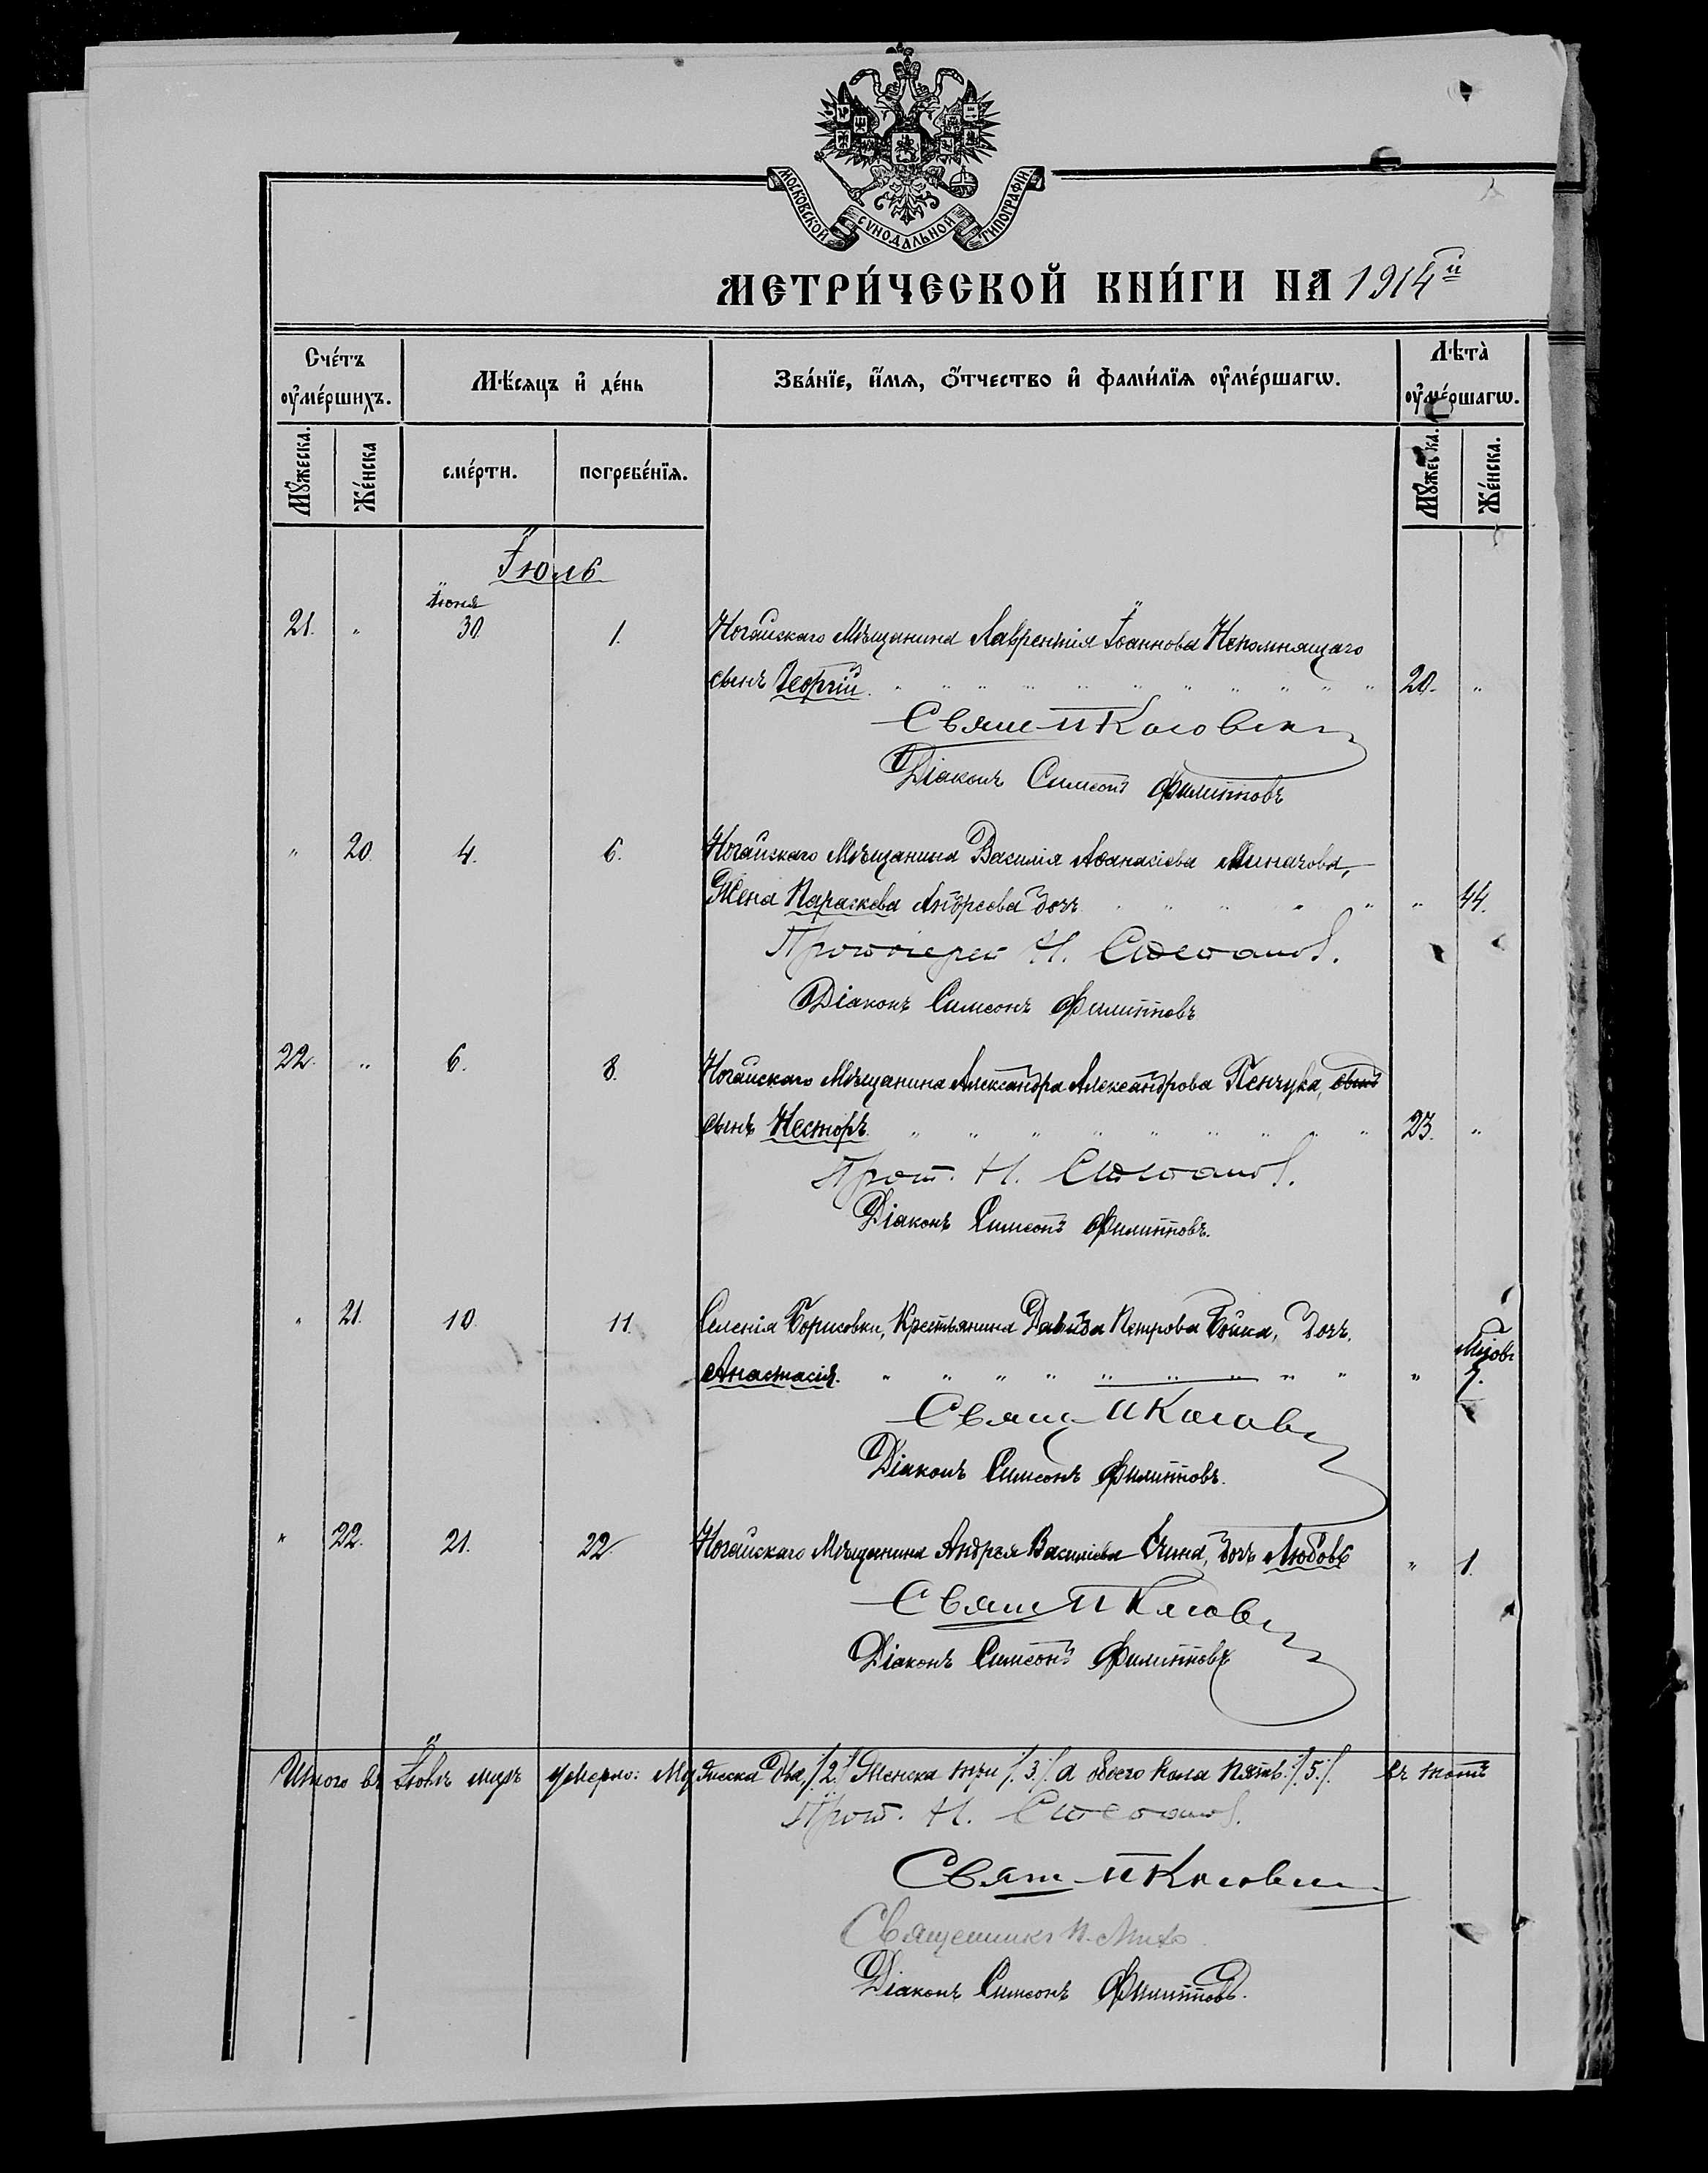 МОСКОВСКОЙ СУНОДАЛЬНОЙ ТИПОГРАФІИ
МЕТРИ́ЧЕСКОЙ КНИ́ГИ НА 1914й
Счéтъ ᲂу҆мéршихъ.
Мѣ́сяцъ и҆ дéнь
Звáнїе, и҆́мѧ, ѻ҆́тчество и҆ фами́лїѧ ᲂу҆мéршагѡ.
Лѣтà ᲂу҆мéршагѡ.
Мꙋ́жеска.
Жéнска
смéрти.
погребéнїѧ.
Мꙋ́жеска.
Жéнска.
Іюль
Іюня
21. " 30. 1. Ногайскаго Мѣщанина Лаврентія Іоаннова Непомнящаго
сынъ Георгій. " " " " " " " " " " 20. "
Свящ И Косовск
Діаконъ Симеонъ Филипповъ
" 20. 4. 6. Ногайскаго Мѣщанина Василія Аѳанасіева Миначова,
Жена Параскева Андреева дочъ " " " " " " 44.
Протоіерей Н. Степанов.
Діаконъ Симеонъ Филипповъ
22. " 6. 8. Ногайскаго Мѣщанина Александра Александрова Пенчука, сынъ
сынъ Несторъ " " " " " " " " " 23. "
Прот. Н. Степанов.
Діаконъ Симеонъ Филипповъ.
" 21. 10. 11. Селенія Борисовки, Крестьянина Давида Петрова Бойка, дочъ.
Мцовъ
Анастасія. " " " " " " " " " " 7.
Свящ И Косов
Діаконъ Симеонъ Филипповъ.
" 22. 21. 22. Ногайскаго Мѣщанина Андрея Василіева дочъ Любовь " 1.
Свящ И Косов
Діаконъ Симеонъ Филипповъ
Итого въ Іюлѣ мцѣ умерло: Мужеска два /.2./ Женска три /.3./ а обоего пола пять. /.5./. въ томъ
Прот. Н. Степанов.
Свящ И Косовск
Священникъ
Діаконъ Симеонъ Филипповъ.